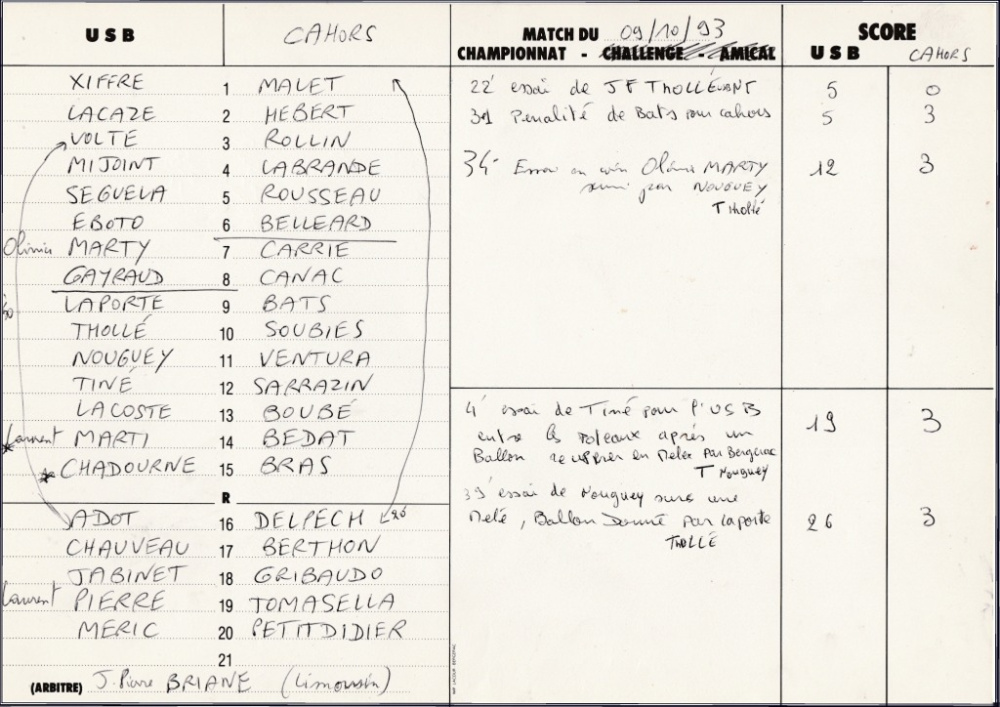 USB CAHORS
XIFFRE 1 MALET
LACAZE 2 HEBERT
VOLTE 3 ROLLIN
MIJOINT 4 LABRANDE
SEGUELA 5 ROUSSEAU
EBOTO 6 BELLEARD
Olivier MARTY 7 CARRIE
GAYRAUD 8 CANAC
LAPORTE 9 BATS
THOLLÉ 10 SOUBIES
NOUGUEY 11 VENTURA
TINÉ 12 SARRAZIN
LACOSTE 13 BOUBÉ
Laurent MARTI 14 BEDAT
CHADOURNE 15 BRAS
R
ADOT 16 DELPECH
CHAUVEAU 17 BERTHON
JABINET 18 GRIBAUDO
Laurent PIERRE 19 TOMASELLA
MERIC 20 PETITDIDIER
21
(ARBITRE) J. Pierre BRIANE (Limousin)
MATCH DU 09/10/93
CHAMPIONNAT - CHALLENGE - AMICAL
SCORE
USB CAHORS
22' essai de JF THOLLÉ 5 0
31 Penalité de Bats pour cahors 5 3
34' Essai en coin Olivier MARTY 12 3
suivi par NOUGUEY
T Thollé
4' essai de Tiné pour l'USB 19 3
entre les poteaux après un
Ballon recupérer en Melée Par Bergerac
T Nouguey
39' essai de Nouguey sur une
Melé, Ballon Donné par Laporte 26 3
THOLLÉ